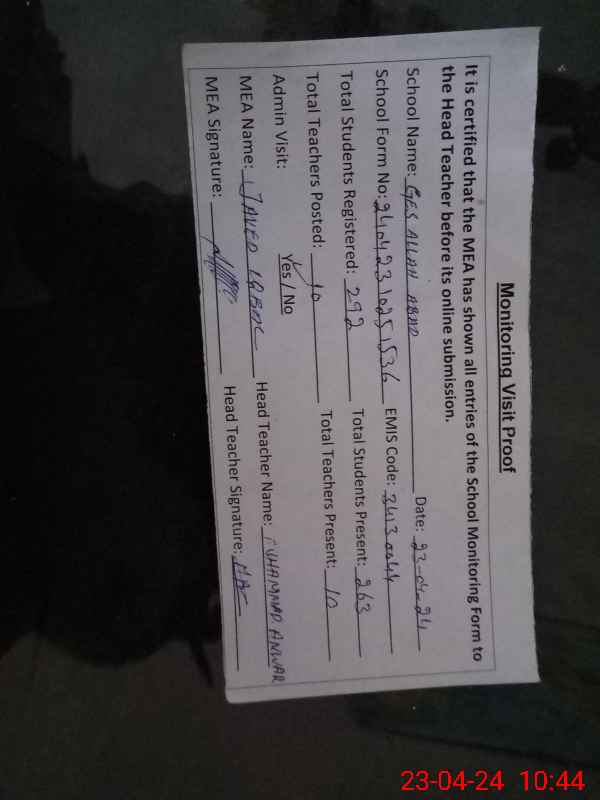 Monitoring Visit Proof
It is certified that the MEA has shown all entries of the School Monitoring Form to
the Head Teacher before its online submission.
School Name: GES ALLAH ABAD Date: 23-04-24
School Form No: 24042310251536 EMIS Code:
Total Students Registered: 292 Total Students Present: 263
Total Teachers Posted: 10 Total Teachers Present: 10
Admin Visit: Yes / No
MEA Name: JAVED IQBAL Head Teacher Name: MUHAMMAD ANWAR
MEA Signature: Head Teacher Signature:
23-04-24 10:44